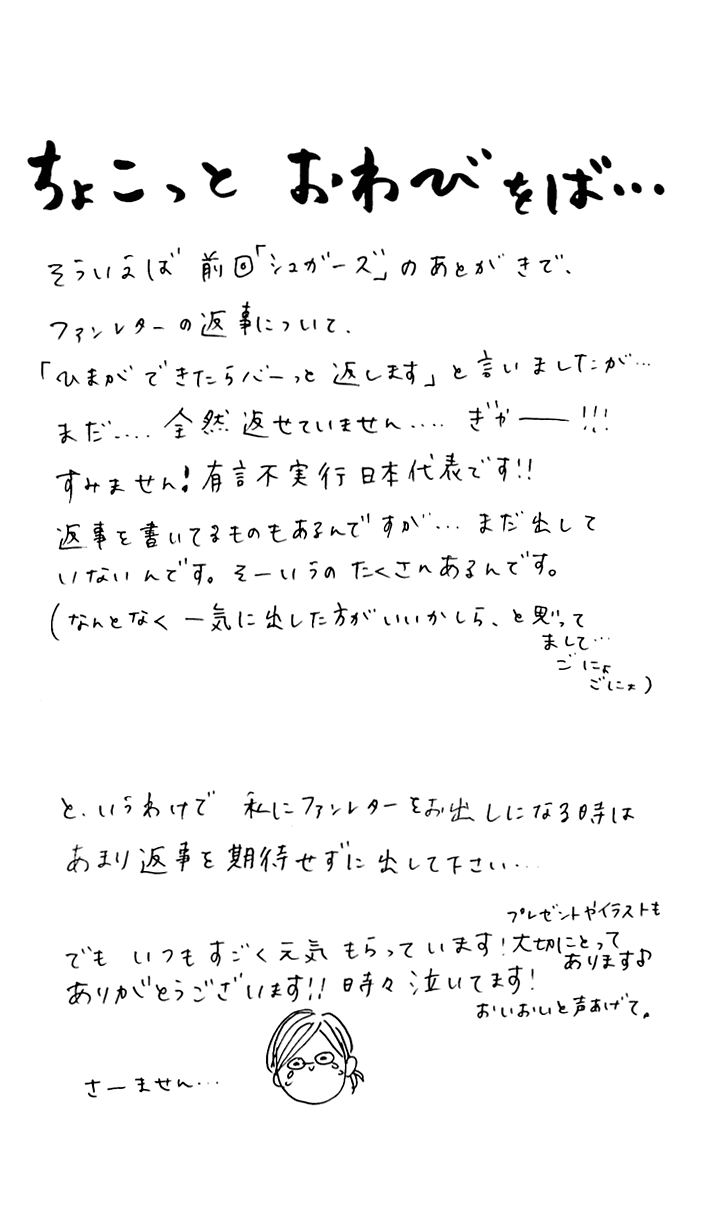 ちょこっと おわびをば…
そういえば 前回「シュガーズ」のあとがきで、
ファンレターの返事について、
「ひまができたらバーっと返します」と言いましたが…
まだ.... 全然返せていません.... ぎゃー!!!
すみません!有言不実行日本代表です!!
返事を書いてるものもあるんですが…まだ出して
いないんです。そーいうのたくさんあるんです。
(なんとなく一気に出した方がいいかしら、と思って
まして…
ごにょ
ごにょ)
と、いうわけで 私にファンレターをお出しになる時は
あまり返事を期待せずに出して下さい…
でも いつもすごく元気もらっています!
プレゼントやイラストも
大切にとって
あります♪
ありがとうございます!! 時々泣いてます!
おいおいと声あげて。
さーません…